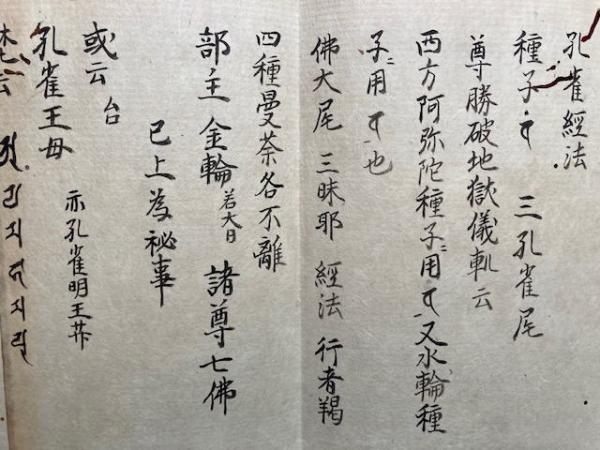 孔雀經法
種子 三孔雀尾
尊勝破地獄儀軌云
西方阿弥陀種子ニ用 又水輪種
子ニ用 也
佛大尾 三昧耶 經法 行者羯
四種曼荼各不離
部主 金輪 若大日 諸尊七佛
已上為祕事
或云 台
孔雀王母 亦孔雀明王䒑
云